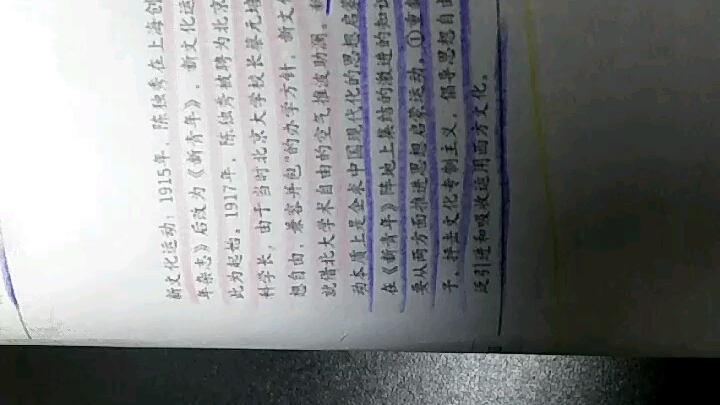 新文化运动：1915年，陈独秀在上海创
年杂志》后改为《新青年》，新文化运
此为起始。1917年，陈独秀被聘为北京
科学长，由于当时北京大学校长蔡元培
想自由，兼容并包"的办学方针，新文化
就借北大学术自由的空气推波助澜。
动本质上是企求中国现代化的思想启蒙
在《新青年》阵地上集结的激进的知识
要从两方面推进思想启蒙运动。①重新
子，抨击文化专制主义，倡导思想自由
泛引进和吸收运用西方文化。